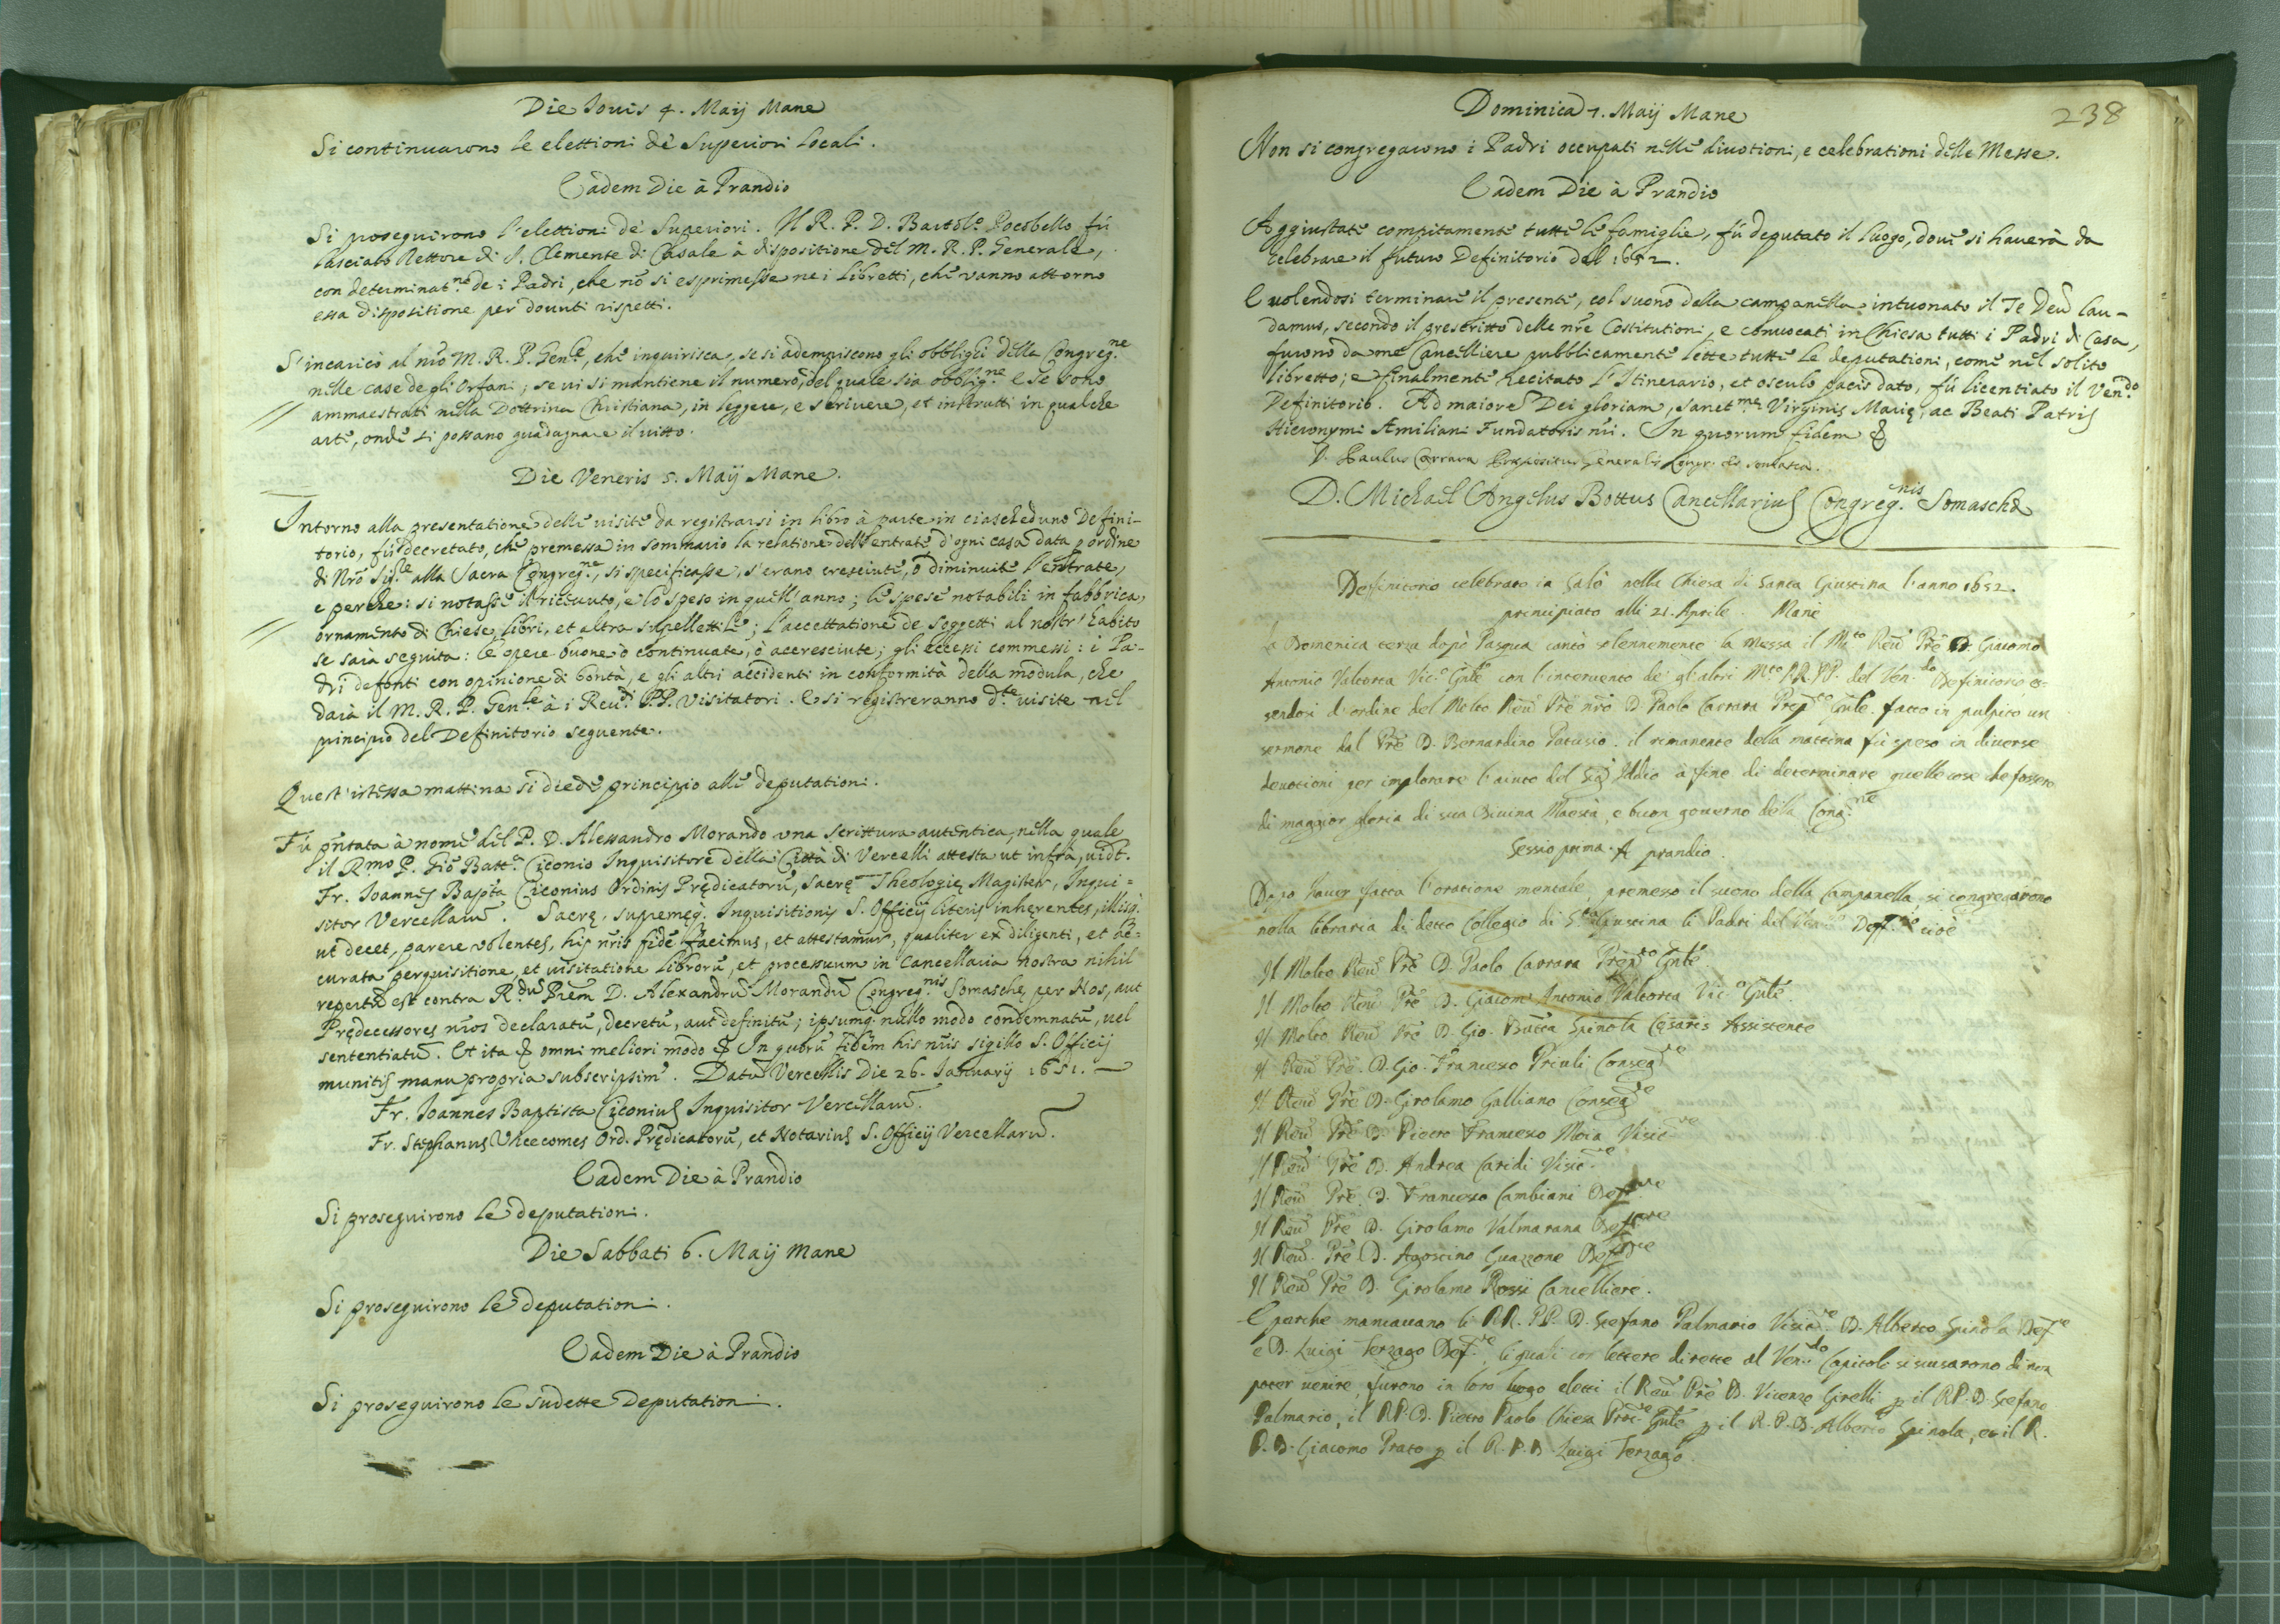 Die Iouis 4. Maÿ Mane
Si continuarono le elettioni dè Superiori locali.
Eadem Die à Prandio
Si proseguirono l'elettioni dè Superiori. Il R. P. D. Bartol.o Pocobello fù
lasciato Rettore di S. Clemente di Casale à dispositione del M. R. P. Generale,
con determinat.ne de i Padri, che nō si esprimesse ne i libretti, che vanno attorno
essa dispositione per douuti rispetti.
S'incaricò al nr̄o M. R. P. Gen.le, che inquirisca, se si adempiscono gli obblighi della Congreg.ne
nelle case de gli Orfani; se ui si mantiene il numero, del quale sia obblig.ne e se sono
ammaestrati nella Dottrina Christiana, in leggere, e scriuere, et instrutti in qualche
arte, onde si possano guadagnare il uitto.
Die Veneris 5. Maÿ Mane.
Intorno alla presentatione delle visite da registrarsi in libro à parte in ciascheduno Defini-
torio, fù decretato, che premessa in sommario la relatione dell'entrate d'ogni casa data p ordine
di Nrō Sig.re alla Sacra Congreg.ne, si specificasse, s'erano cresciute, ò diminuite l'entrate,
e perche: si notasse il riceuuto, e lo speso in quell'anno; le spese notabili in fabbrica,
ornamento di Chiese, libri, et altra supellettile; l'accettatione de soggetti al nostr'habito
se sarà seguita: le opere buone ò continuate, ò accresciute; gli eccessi commessi: i Pa-
dri defonti con opinione di bontà, e gli altri accidenti in conformità della modula, che
darà il M. R. P. Gen.le à i Reu.di PP. Visitatori. E si registreranno d.te uisite nel
principio del Definitorio seguente.
Quest'istessa mattina si diede principio alle deputationi.
Fù pn̄tata à nome del P. D. Alessandro Morando vna scrittura autentica, nella quale
il R.mo P. Giō Batt.a Ciconio Inquisitore della Città di Vercelli attesta ut infra, uidt.
Fr. Ioannes Bapt̄a Ciconius Ordinis Prędicatorū, Sacrę Theologię Magister, Inqui=
sitor Vercellarū. Sacrę, supremęq. Inquisitionis S. Officÿ literis inhęrentes, illisq.
ut decet, parere volentes, his nr̄is fidē facimus, et attestamur, qualiter ex diligenti, et ac=
curata perquisitione, et uisitatione librorū, et processuum in Cancellaria nostra nihil
repertū est contra R.dū Prēm D. Alexandrū Morandū Congreg.nis Somaschę per Nos, aut
Prędecessores nr̄os declaratū, decretū, aut definitū; ipsumq. nullo modo condemnatū, uel
sententiatū. Et ita & omni meliori modo & In quorū fidem his nr̄is sigillo S. Officÿ
munitis manu propria subscripsim'. Datū Vercellis Die 26. Ianuarÿ 1651.
Fr. Ioannes Baptista Ciconius Inquisitor Vercellarū.
Fr. Stephanus Vicecomes Ord. Prędicatorū, et Notarius S. Officÿ Vercellarū.
Eadem Die à Prandio
Si proseguirono le deputationi.
Die Sabbati 6. Maÿ mane
Si proseguirono le deputationi.
Eadem Die à Prandio
Si proseguirono le sudette Deputationi.
238
Dominica 7. Maÿ Mane
Non si congregarono i Padri occupati nelle diuotioni, e celebrationi delle Messe.
Eadem Die à Prandio
Aggiustate compitamente tutte le famiglie, fù deputato il luogo, doue si hauerà da
celebrare il futuro Definitorio del 1652.
E uolendosi terminare il presente, col suono della campanella intuonato il Te Deū Lau-
damus, secondo il prescritto delle nr̄e Costitutioni, e conuocati in Chiesa tutti i Padri di Casa,
furono da me Cancelliere pubblicamente lette tutte le deputationi, come nel solito
libretto; e finalmente recitato l'Itinerario, et osculo pacis dato, fù licentiato il Ven.do
Definitorio. Ad maiorē Dei gloriam, Sanct.mę Virginis Marię, ac Beati Patris
Hieronymi Amiliani Fundatoris nr̄i. In quorum fidem &
D. Paulus Carrara Prępositus Generalis Congr. de Somasca.
D. Michael Angelus Bottus Cancellarius Congreg.nis Somaschæ
Definitorio celebrato in Salò nella Chiesa di Santa Giustina l'anno 1652.
principiato alli 21. Aprile. Mane
La Domenica terza dopò Pasqua cantò solennemente la Messa il M.to Reu.do Prē D. Giacomo
Antonio Valtorta Vic.o Gn̄le con l'interuento de gl'altri M.to RR. PP. del Ven.do Definitorio es-
sendosi d'ordine del Molto Reu.do Prē nr̄o D. Paolo Carrara Prep.to Gn̄le fatto in pulpito un
sermone dal Prē D. Bernardino Patusio. il rimanente della mattina fù speso in diuerse
deuotioni per implorare l'aiuto del Sig.r Iddio à fine di determinare quelle cose che fossero
di maggior gloria di sua Diuina Maestà, e buon gouerno della Cong.ne
Sessio prima. A prandio.
Dopo hauer fatta l'oratione mentale, premesso il suono della Campanella si congregarono
nella libraria di detto Collegio di S.ta Giustina li Padri del Deff.rio cioè
Il Molto Reu.do Prē D. Paolo Carrara Prep.to Gn̄le
Il Molto Reu.do Prē D. Giacom' Antonio Valtorta Vic.o Gn̄le
Il Molto Reu.do Prē D. Gio. Batt̄a Spinola Cęsaris Assistente
Il Reu.do Prē D. Gio. Francesco Priuli Conseg.re
Il Reu.do Prē D. Girolamo Galliano Conseg.re
Il Reu.do Prē D. Pietro Francesco Moia Visit.re
Il Reu.do Prē D. Andrea Caridi Visit.re
Il Reu.do Prē D. Francesco Cambiani Def.re
Il Reu.do Prē D. Girolamo Valmarana Def.re
Il Reu.do Prē D. Agostino Guazzone Def.re
Il Reu.do Prē D. Girolamo Rossi Cancelliere.
E perche mancauano li RR. PP. D. Stefano Palmario Visit.re D. Alberto Spinola Def.re
e D. Luigi Terzago Def.re, li quali con lettere dirette al Ven.do Capitolo si scusarono di non
poter uenire, furono in loro luogo eletti il Reu.do Prē D. Vicenzo Girelli p il RP. D. Stefano
Palmario, il RP. D. Pietro Paolo Chiesa Proc.re Gn̄le p il R. P. D. Alberto Spinola, et il R.
P. D. Giacomo Prato p il R. P. D. Luigi Terzago.